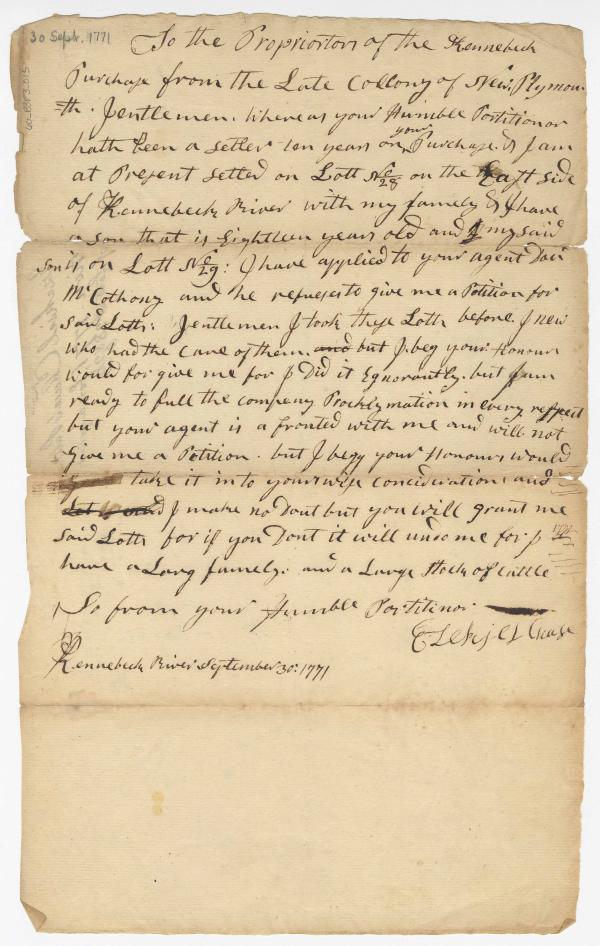 30 Sept. 1771
To the Propriortors of the Kennebeck
Purchase from the Late Collony of New: Plymou
th. Jentlemen. whereas your Humble Portitionor
hath been a setler ten years on your Purchase. & I am
at Present setled on Lott No 28 on the East side
of Kennebeck River with my famely & I have
a son that is Eighteen years old and my said
son is on Lott No 29: I have applied to your agent
Mc and he refueses to give me a Potition for
said Lotts: Jentlemen I took these Lotts before. I new
who had the Care of them. and but I. beg your Honours
would for give me for I Did it Egnorantly. but I am
ready to full the company Procklymation in every respect
but your agent is a fronted with me and will not
Give me a Potition. but I begg your Honours would
take it into your wise Concideration and
I make no Dout but you will grant me
said Lotts for if you Dont it will undo me for I
have a Larg famely: and a Large Stock of Cattle
So from your Humble Portitinor
Ezekiel Chase
Kennebeck River September 30: 1771